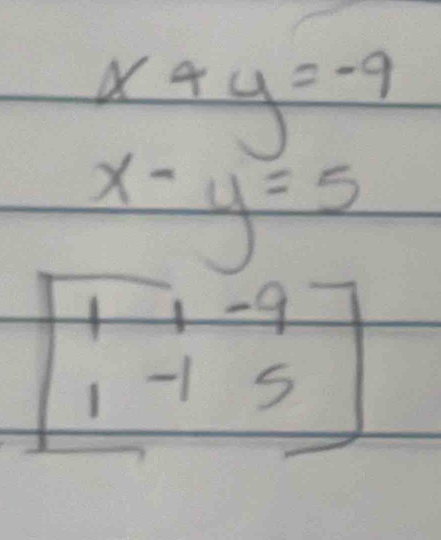 x + y = -9
x - y = 5
1 1 -9
1 -1 5